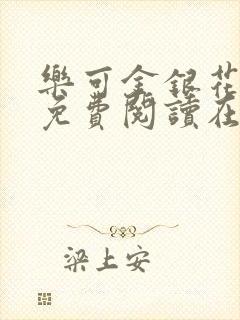 樂可金銀花
免費閱讀在
梁上安